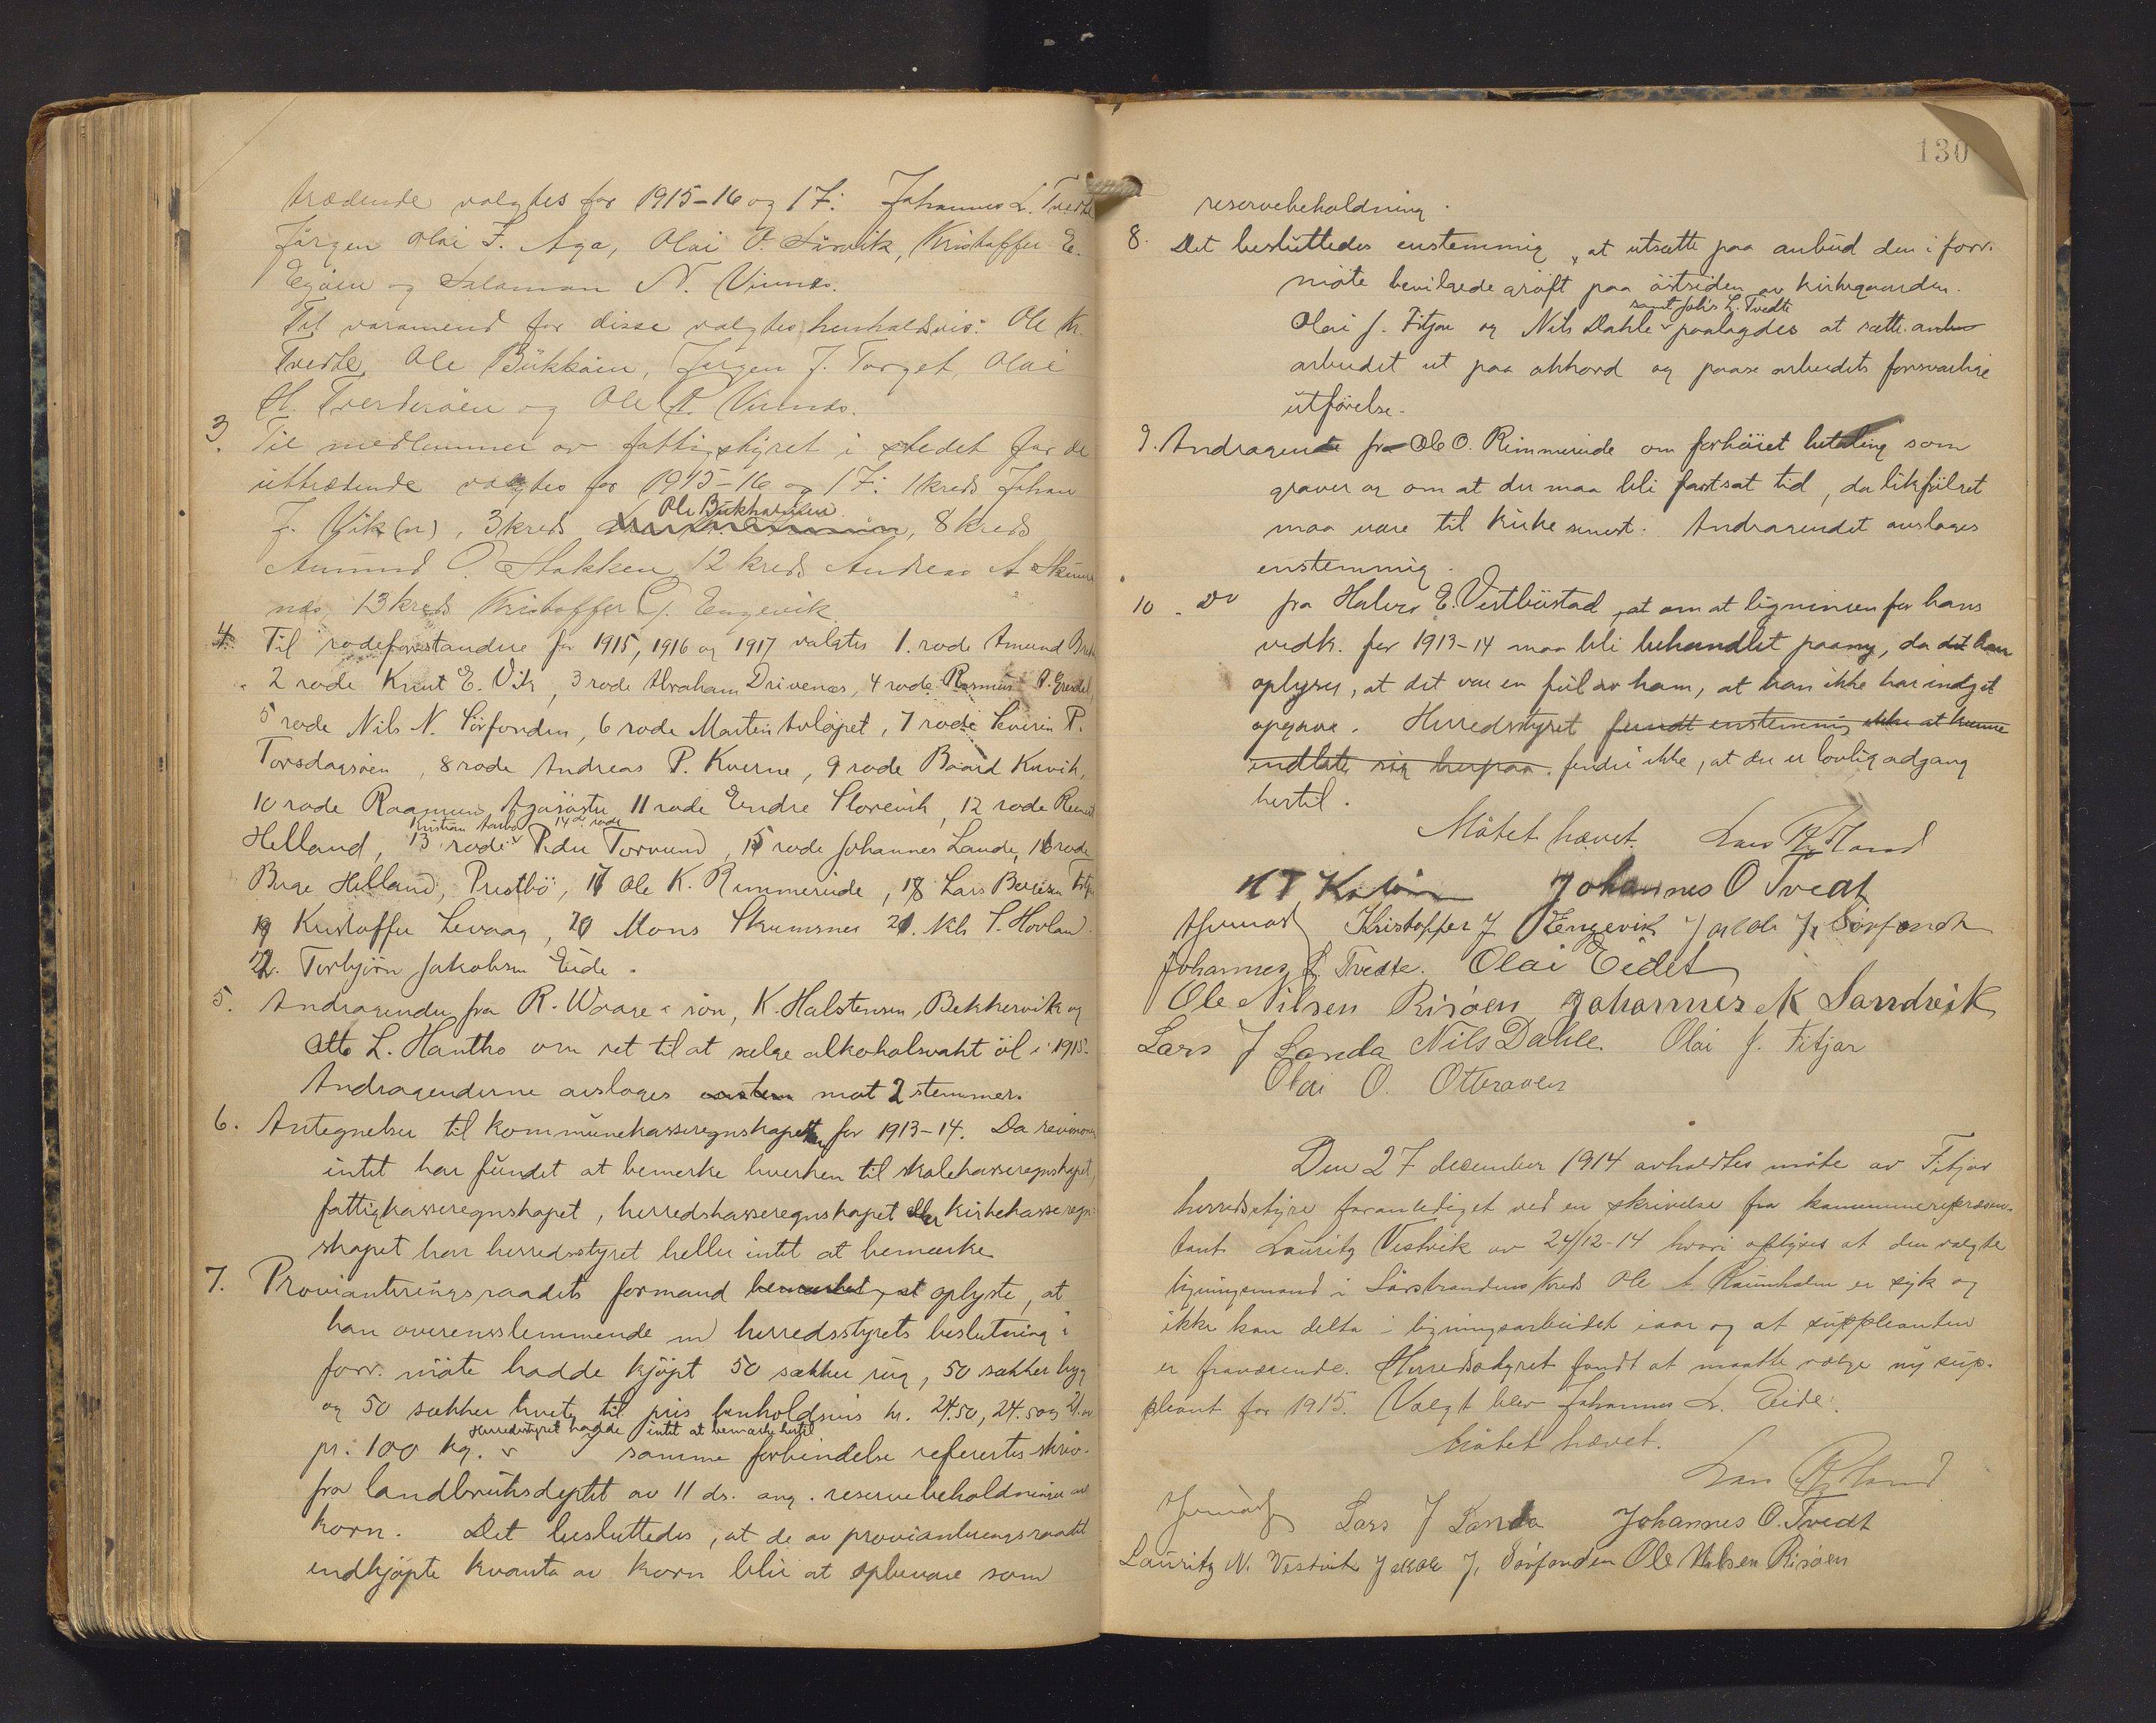 trædende valgtes for 1915-16 og 17: Johannes L. Tvedte
Jörgen Olai J. Aga, Olai O. Sörvik, Kristoffer E.
Egöien og Salamon N. Vinnes.
Til varamend for disse valgtes henholdsvis: Ole K.
Tvedte, Ole Bukköien, Jörgen J. Torget, Olai
H. Tverderöen og Ole P. Vinnes.
3. Til medlemmer av fattigstyret i stedet for de
uttrædende valgtes for 1915-16 og 17: 1 kreds Johan
J. Vik (n), 3 kreds Ole Bukholmen, 8 kreds
Amund O. Stokken 12 kreds Andreas A Skums
nes, 13 kreds Kristoffer J. Engevik.
4. Til rodeforstandere for 1915, 1916 og 1917 valgtes 1. rode Amund
2 rode Knut E. Vik, 3 rode Abraham Drivenes, 4 rode Rasmus
5 rode Nils N. Sörfonden, 6 rode Martin Avlöpet, 7 rode Severin P.
Torsdagsöen, 8 rode Andreas P. Kverne, 9 rode Baard Kuvik,
10 rode Rasmus Agasöster 11 rode Endre Storevik, 12 rode
Helland, 13 rode Kristian Aarbö 14de rode Peder Tornund, 15 rode Johannes Lande, 16 rode
Berge Helland, Prestbö, 17 Ole K. Rimmereide, 18 Lars Bergesen
19 Kristoffer Levaag, 20 Mons Skumsnes 21. Nils S. Hovland
22. Torbjörn Jakobsen Eide.
5. Andragender fra R. Waage & sön, K. Halstensen, Bekkervik og
Otto L. Hantho om ret til at sælge alkoholsvakt öl i 1915.
Andragenderne avsloges enstem mot 2 stemmer.
6. Antegnelser til kommunekasseregnskapet for 1913-14. Da revisionen
intet har fundet at bemerke hverken til skolekasseregnskapet,
fattigkasseregnskapet, herredskasseregnskapet eller kirkekasseregn-
skapet har herredsstyret heller intet at bemerke
7. Provianteringsraadets formand bemerket, at oplyste, at
han overensstemmende m herredsstyrets beslutning i
forr. möte hadde kjöpt 50 sækker rug, 50 sækker byg
og 50 sækker hvete til pris henholdsvis kr. 24.50, 24.50 og
pr. 100 kg. Herredsstyret hadde intet at bemerke hertil samme forbindelse refertes skriv.
fra landbruksdeptet av 11 ds. ang. reservebeholdninger av
korn. Det besluttedes, at de av provianteringsraadet
indkjöpte kvanta av korn blir at opbevare som
130
reservebeholdning.
8. Det besluttedes enstemmig, at utsætte paa anbud den i forr.
möte bevilgede gröft paa östsiden av kirkegaarden.
Olai J. Fitjar og Nils Dahle samt Johs L. Tvedte paalagdes at sætte
arbeidet ut paa akkord og paase arbeidets forsvarlige
utförelse.
9. Andragende fra Ole O. Rimmereide om forhöiet betaling som
graver og om at der maa bli fastsat tid, da likfölget
maa være til kirke senest. Andragendet avsloges
enstemmig.
10. Do fra Halvor E. Vestböstad, at om at ligningen for hans
vedk. for 1913-14 maa bli behandlet paany, da det han
oplyser, at det var en feil av ham, at han ikke har indgit
opgave. Herredsstyret fundt enstemmig ikke at kunne
indlate sig herpaa. finder ikke, at der er lovlig adgang
hertil.
Mötet hævet. Lars Rydland
Johannes O Tvedt
Kristoffer J Engevik Jakob J. Sörfonden
Johannes L Tvedte. Olai Eidet
Ole Nilsen Risöen Johannes M Sandvik
Lars J Landa Nils Dahle Olai J. Fitjar
Olai O. Otteraaen
Den 27 december 1914 avholdtes möte av Fitjar
herredsstyre foranlediget ved en skrivelse fra kommunerepræsen-
tant Lauritz Vestvik av 24/12-14 hvori oplyses at den valgte
ligningsmand i Sörstrandens kreds Ole A. Raunholm er syk og
ikke kan delta i ligningsarbeidet iaar og at suppleanten
er fraværende. Herredsstyret fandt at maatte vælge ny sup-
pleant for 1915. Valgt blev Johannes L. Eide.
Mötet hævet.
Lars Rydland
Lars J Landa Johannes O. Tvedt
Lauritz N. Vestvik Jakob J. Sörfonden Ole Nilsen Risöen